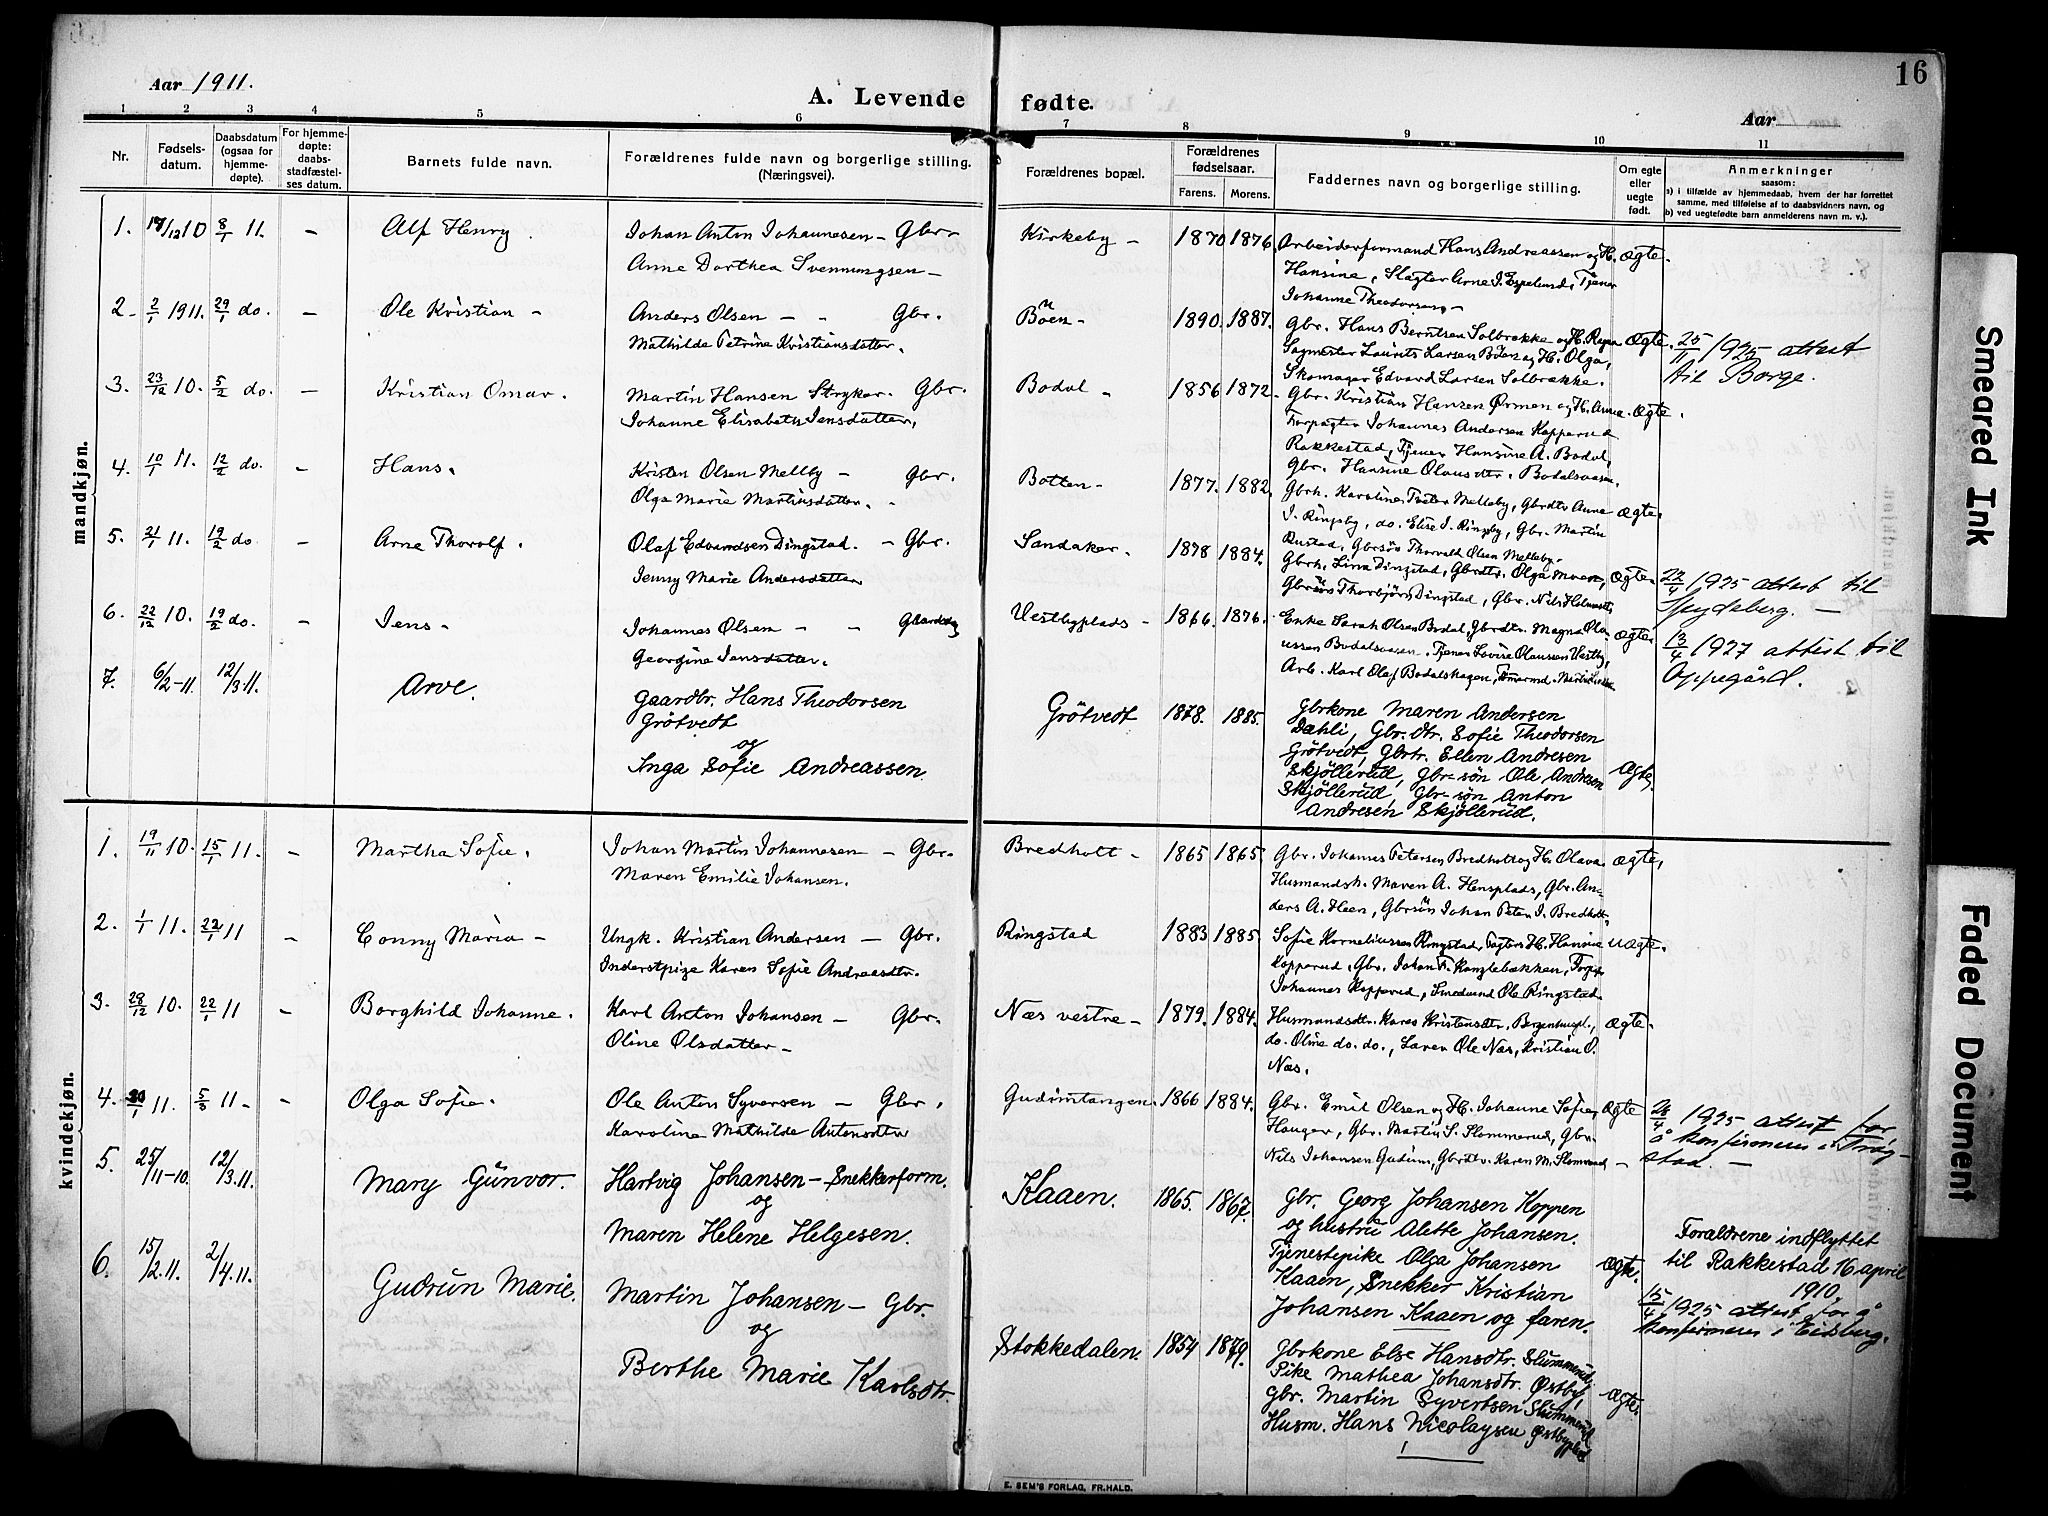 16
Aar 1911.
A. Levende fødte.
Aar
1 2 3 4 5 6 7 8 9 10 11
Nr.
Fødselsdatum.
Daabsdatum (ogsaa for hjemmedøpte).
For hjemmedøpte: daabsstadfæstelses datum.
Barnets fulde navn.
Forældrenes fulde navn og borgerlige stilling.
(Næringsvei).
Forældrenes bopæl.
Forældrenes fødselsaar.
Farens. Morens.
Faddernes navn og borgerlige stilling.
Om egte eller uegte født.
Anmerkninger
saasom:
a) i tilfælde av hjemmedaab, hvem der har forrettet
samme, med tilføielse af to daabsvidners navn, og
b) ved uegtefødte barn anmelderens navn m. v.).
mandkjøn.
1. 17/12 10 8/1 11. – Alf Henry. Johan Anton Johannesen – Gbr – Kirkeby – 1870 1876. Arbeiderformand Hans Andreassen og H. Ægte.
Anne Dorthea Svenningsen – Hansine, Slagter Arne I. Espelund, Tjener
Johanne Theodorsen –
2. 2/1 1911. 29/1 do. – Ole Kristian – Anders Olsen – Gbr. Böen – 1890. 1887. Gbr. Hans Berntsen Solbrække og H. Ægte. 25/11 1925 attest
Mathilde Petrine Kristiansdatter. Sagmester Laurits Larsen Böen og H. Olga, til Borge.
Skomager Edvard Larsen Solbrække.
3. 23/12 10. 5/2 do. – Kristian Omar. Martin Hansen Stryker. Gbr. Bodal – 1856 1872. Gbr. Kristian Hansen Ørmen og H. Anna. Ægte.
Johanne Elisabeth Jensdatter. Forpagter Johannes Andersen Kopperud
Rakkestad, Tjener Hansine A. Bodal,
Gbr. Hansine Olausdtr. Bodalsaasen.
4. 10/1 11. 12/2 do. – Hans. Kristen Olsen Melleby – Gbr. Botten – 1877. 1882. Gbrh. Karoline Tveter Melleby, Gbrdtr Anna Ægte.
Olga Marie Martinsdatter. I. Ringsby, do. Elise I. Ringsby, Gbr. Martin
Rustad, Gbrsön Thorvald Olsen Melleby.
5. 21/1 11. 19/2 do – Arne Thorolf. Olaf Edvardsen Dingstad. – Gbr. Sandaker. 1878 1884. Gbrh. Lina Dingstad, Gbrdtr. Olga Ægte. 22/4 1925 attest til
Jenny Marie Andersdatter Gbrsön Thorbjörn Dingstad, Gbr. Nils Spydeberg. –
6. 22/12 10. 19/2 do. – Jens. Johannes Olsen – Vestbyplads – 1866. 1876. Enke Sarah Olsen Bodal, Gbrdtr. Magna Ola- Ægte. 13/4 1927 attest til
Georgine Jensdatter. ussen Bodalsaasen. Tjener Lovise Olaussen Vestby, Oppegård.
Arb. Karl Olaf Bodalshagen,
7. 6/2-11. 12/3.11. Arve. Gaardbr. Hans Theodorsen Grötvedt 1878. 1885. Gbrkone Maren Andersen
Grötvedt Dæhli, Gbr. dtr. Sofie Theodorsen
og Grötvedt, Gbrtr. Ellen Andresen
Inga Sofie Andreassen. Skjöllerud, Gbr-sön Ole Andresen Ægte.
Skjöllerud, Gbr-sön Anton
Andresen Skjöllerud.
kvindekjøn.
1. 19/11 10. 15/1 11. – Martha Sofie. Johan Martin Johannesen – Gbr. Bredholt – 1865 1865. Gbr. Johannes Petersen Bredholt og H. Olava Ægte.
Maren Emilie Johansen. Husmandsk. Maren A. Hensplads, Gbr. An-
ders A. Heen, Gbrsön Johan Peter I. Bredholt.
2. 1/1 11. 22/1 11 – Conny Maria – Ungk. Kristian Andersen – Gbr. Ringstad 1883 1885. Sofie Korneliussen Ringstad, H. Hansine Uægte.
Inderstpige Karen Sofie Andreasdtr. Kopperud, Gbr. Johan F. Kanzlebækken,
Johannes Kopperud, Ole Ringstad.
3. 28/12 10. 22/1 11 – Borghild Johanne. Karl Anton Johansen – Gbr. Næs vestre – 1879. 1884. Husmandsdtr. Karen Kristensdtr. Ægte.
Oline Olsdatter – do. Oline do. do., Laver Ole Næs, Kristian O.
Næs.
4. 1 11. 5/3 11 – – Olga Sofie. Ole Anton Syversen – Gbr. Gudimtangen. 1866 1884. Gbr. Emil Olsen og H. Johanne Sofie, Ægte 1925 attest for
Karoline Mathilde Antonsdtr Hauger, Gbr. Martin S. Slommerud, Gbr. å konfirmeres i Trøg-
Nils Johansen Gudim, Gbrdtr. Karen M. Slommerud – stad. –
5. 25/11-10. 12/3.11. Mary Günvor. Hartvig Johansen – Snekkerform. Kaaen. 1865. 1867. Gbr. Georg Johansen Koppen
og og hustru Alette Johansen.
Maren Helene Helgesen. Tjenestepike Olga Johansen Ægte. Forældrene indflyttet
Kaaen, Snekker Kristian til Rakkestad 16 april
Johansen Kaaen og faren. 1910.
15/4 1925 attest for å
konfirmeres i Eidsberg.
6. 15/2.11. 2/4.11. Gudrun Marie. Martin Johansen – Gbr. Stokkedalen. 1854 1879. Gbrkone Else Hansdtr. Slummerud,
og Pike Mathea Johansdtr. Østby,
Berthe Marie Karlsdtr. Gbr. Martin Syvertsen Slummerud Ægte.
Husm. Hans Nicolaysen Østbyplad
E. SEM'S FORLAG, FR.HALD.
Smeared Ink
Faded Document